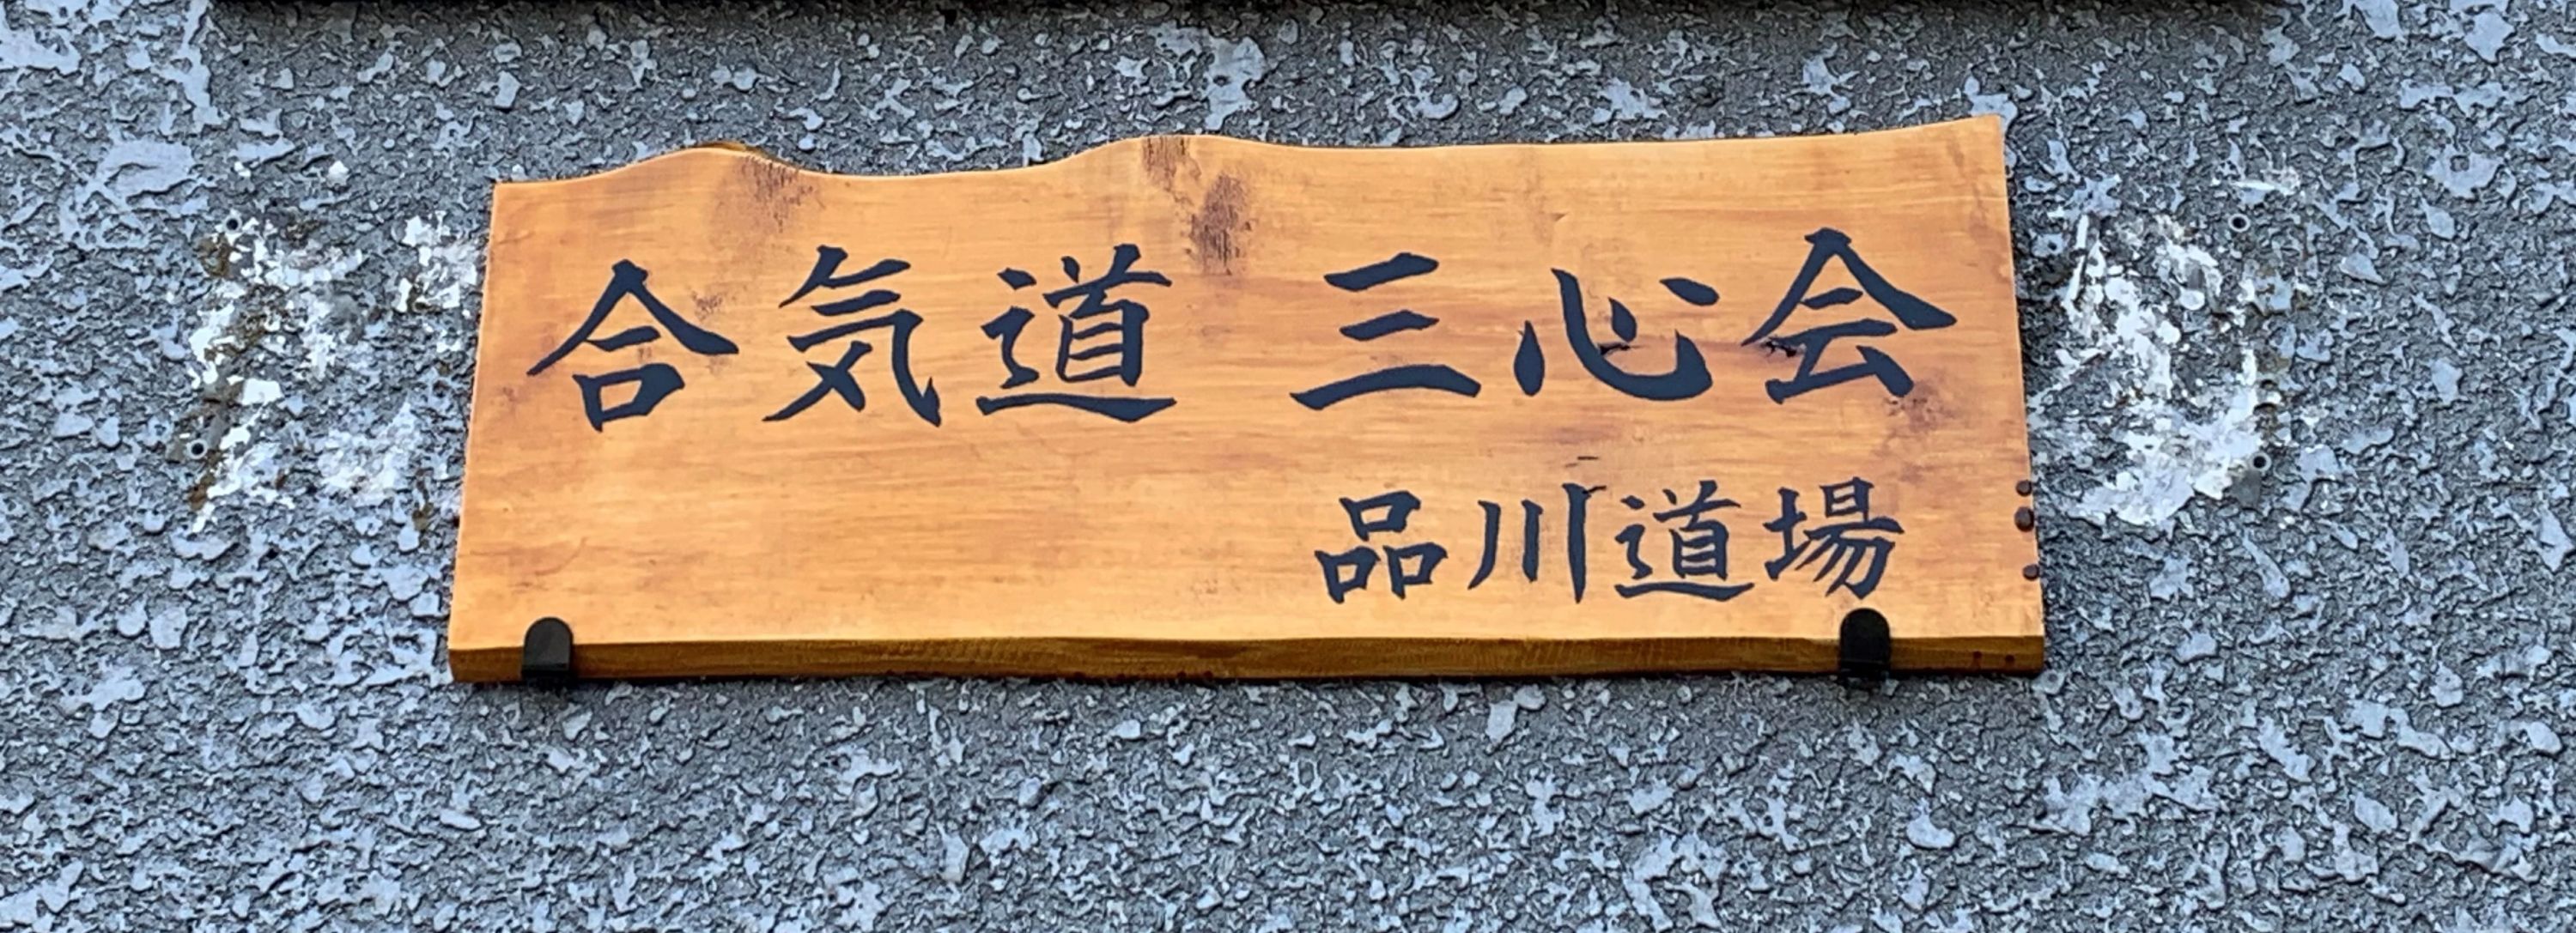 合気道 三心会
品川道場